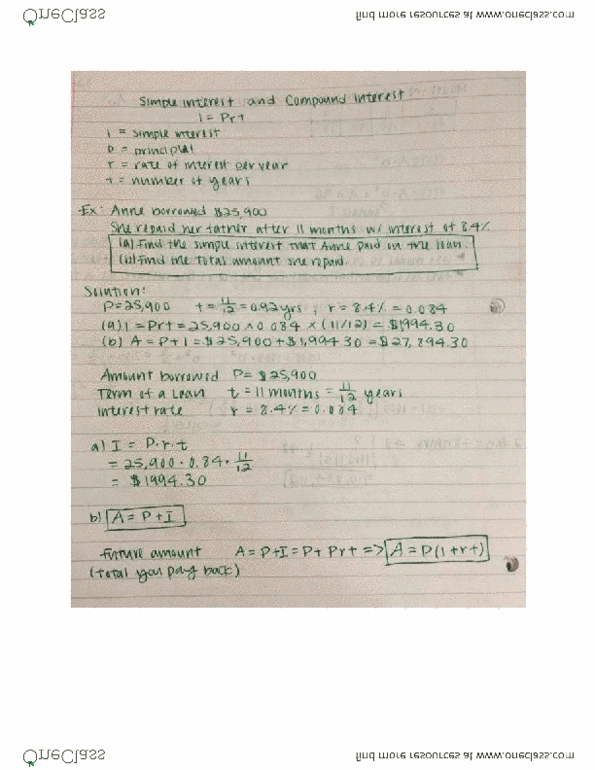 OneClass
find more resources at www.oneclass.com
Simple interest and Compound interest
I = Prt
I = simple interest
P = principal
r = rate of interest per year
t = number of years
Ex: Anne borrowed $25,900
She repaid her father after 11 months w/ interest of 8.4%
(a) Find the simple interest that Anne paid on the loan.
(b) Find the total amount she repaid.
Solution:
P=25,900 t=11/12=0.92yrs, r=8.4%=0.084
(a) I=Prt=25,900×0.084×(11/12)=$1994.30
(b) A=P+I=$25,900+$1,994.30=$27,894.30
Amount borrowed P=$25,900
Term of a Loan t=11 months=11/12 years
interest rate r=8.4%=0.084
a) I = P.r.t
= 25,900·0.84·11/12
= $1994.30
b) A=P+I
future amount A=P+I=P+Prt=>A=P(1+rt)
(total you pay back)
OneClass
find more resources at www.oneclass.com